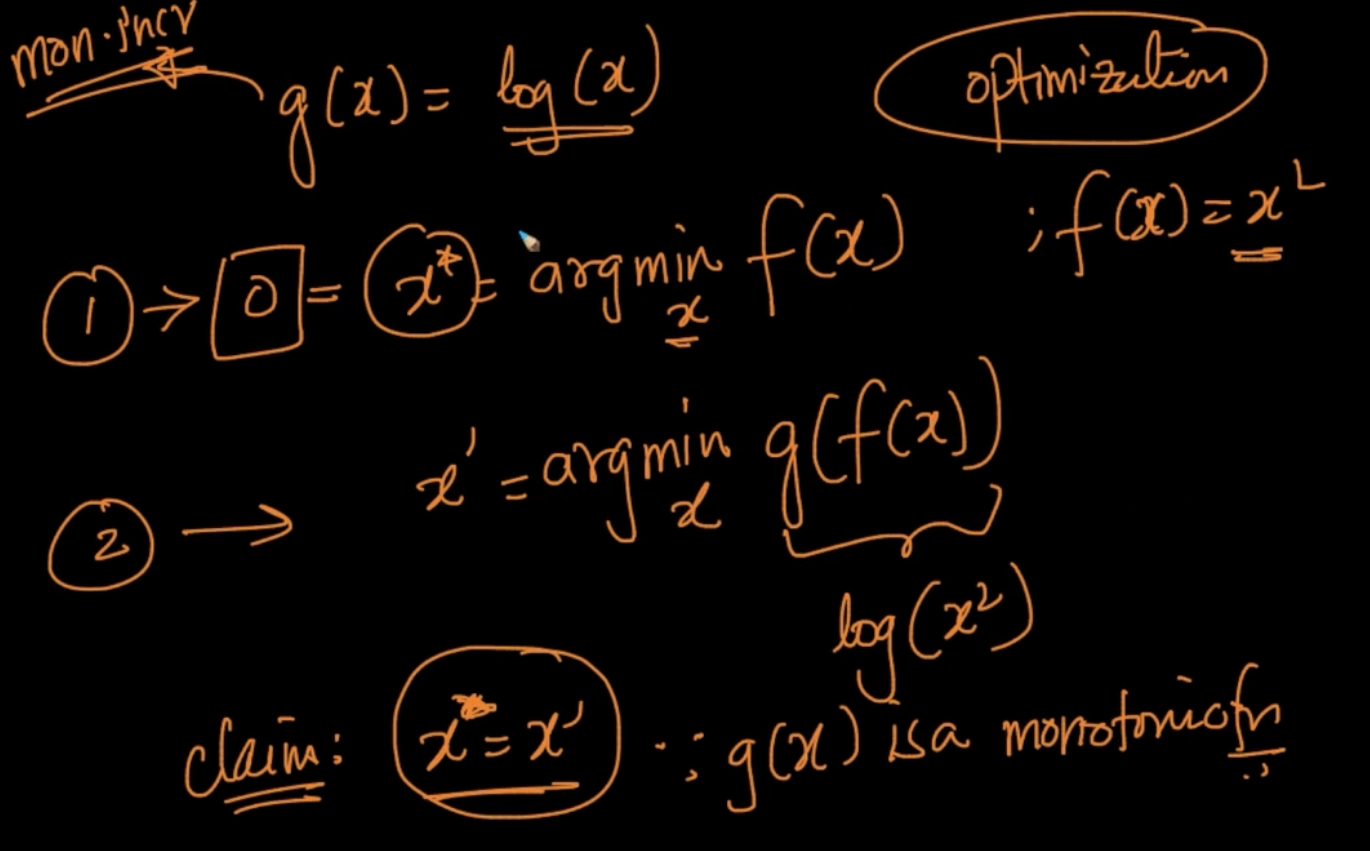 mon. incr
g(x) = log(x)
optimization
① → 0 = x* = argmin f(x) ; f(x) = x²
x
② → x' = argmin g(f(x))
x
log(x²)
claim: x* = x' ∵ g(x) is a monotonic fn